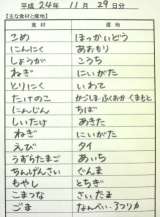 平成24年11月29日分
【主な食材と産地】
食材 産地
こめ ほっかいどう
にんにく あおもり
しょうが こうち
ねぎ にいがた
とりにく いわて
たけのこ かごしま ふくおか くまもと
にんじん ちば
しいたけ あきた
ねぎ にいがた
えび タイ
うずらたまご あいち
ちんげんさい ぐんま
もやし とちぎ
こまつな さいたま
ごま なんべい・アフリカ